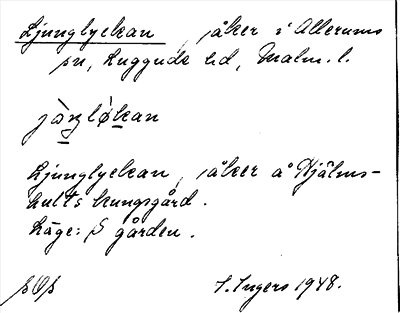 Ljunglyckan, åker i Allerums
sn, Luggude hd, Malm. l.
jàŋlø̀kan
Ljunglyckan, åker å Hjälms-
hults kungsgård.
Läge: S gården.
S. Ingers 1948.